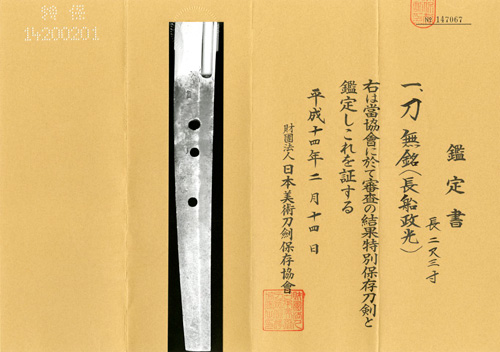 鑑定書
一、刀 無銘(長船政光)
長 二尺三寸
右は當協會に於て審査の結果特別保存刀剣と
鑑定しこれを証する
平成十四年二月十四日
財團法人 日本美術刀剣保存協會
№ 147067
特保
14200201